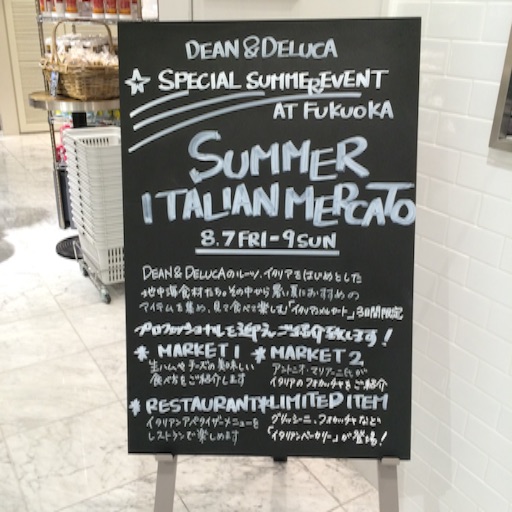 DEAN & DELUCA
☆ SPECIAL SUMMER EVENT
AT FUKUOKA
SUMMER
ITALIAN MERCATO
8.7 FRI - 9 SUN
DEAN & DELUCAのルーツ、イタリアをはじめとした
地中海食材たち。その中から暑い夏におすすめの
アイテムを集め、見て食べて楽しむ「イタリアンメルカート」3日間限定
プロフェッショナルを迎えご紹介致します!
* MARKET 1
生ハムやチーズの美味しい
食べ方をご紹介します
* MARKET 2
アントニオ・マリアーニ氏が
イタリアのフォカッチャをご紹介
* RESTAURANT
イタリアンアペタイザーメニューを
レストランで楽しめます
* LIMITED ITEM
グリッシーニ、フォカッチャなどの
「イタリアンベーカリー」が登場!